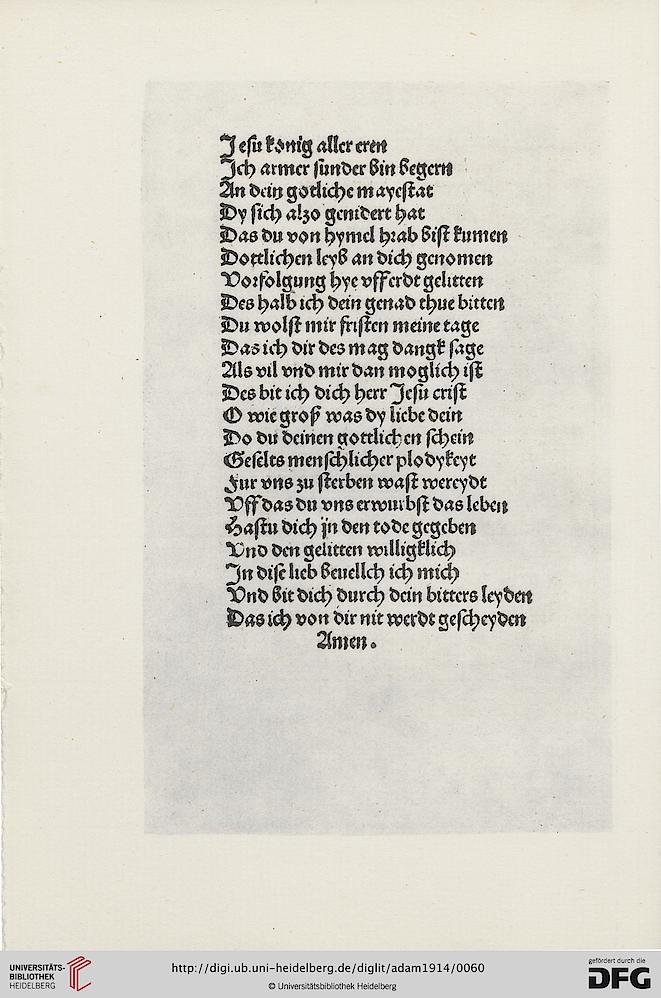 Jesu kȯnig aller eren
Jch armer sunder bin begern
An dein gotliche mayestat
Dy sich alzo genidert hat
Das du von hymel hrab bist kumen
Dottlichen leyb an dich genomen
Vorfolgung hye vfferdt gelitten
Des halb ich dein genad thue bitten
Du wolst mir fristen meine tage
Das ich dir des mag dangk sage
Als vil vnd mir dan moglich ist
Des bit ich dich herr Jesu crist
O wie groß was dy liebe dein
Do du deinen gottlichen schein
Geselts menschlicher plodykeyt
Fur vns zu sterben wast wereydt
Vff das du vns erwurbst das leben
Hastu dich jn den tode gegeben
Vnd den gelitten willigklich
Jn dise lieb beuellch ich mich
Vnd bit dich durch dein bitters leyden
Das ich von dir nit werdt gescheyden
Amen.
UNIVERSITÄTS-
BIBLIOTHEK
HEIDELBERG
http://digi.ub.uni-heidelberg.de/diglit/adam1914/0060
© Universitätsbibliothek Heidelberg
gefördert durch die
DFG